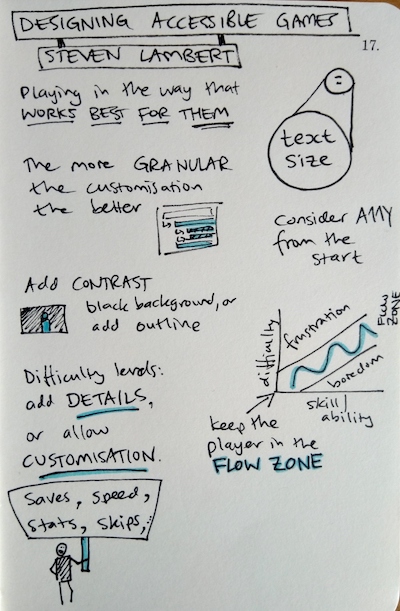 DESIGNING ACCESSIBLE GAMES
STEVEN LAMBERT
17.
Playing in the way that
WORKS BEST FOR THEM
text
size
The more GRANULAR
the customisation
the better
Consider A11Y
from the
start
Add CONTRAST
black background, or
add outline
difficulty
frustration
FLOW
ZONE
boredom
skill/
ability
keep the
player in the
FLOW ZONE
Difficulty levels:
add DETAILS,
or allow
CUSTOMISATION.
Saves, speed,
stats, skips,